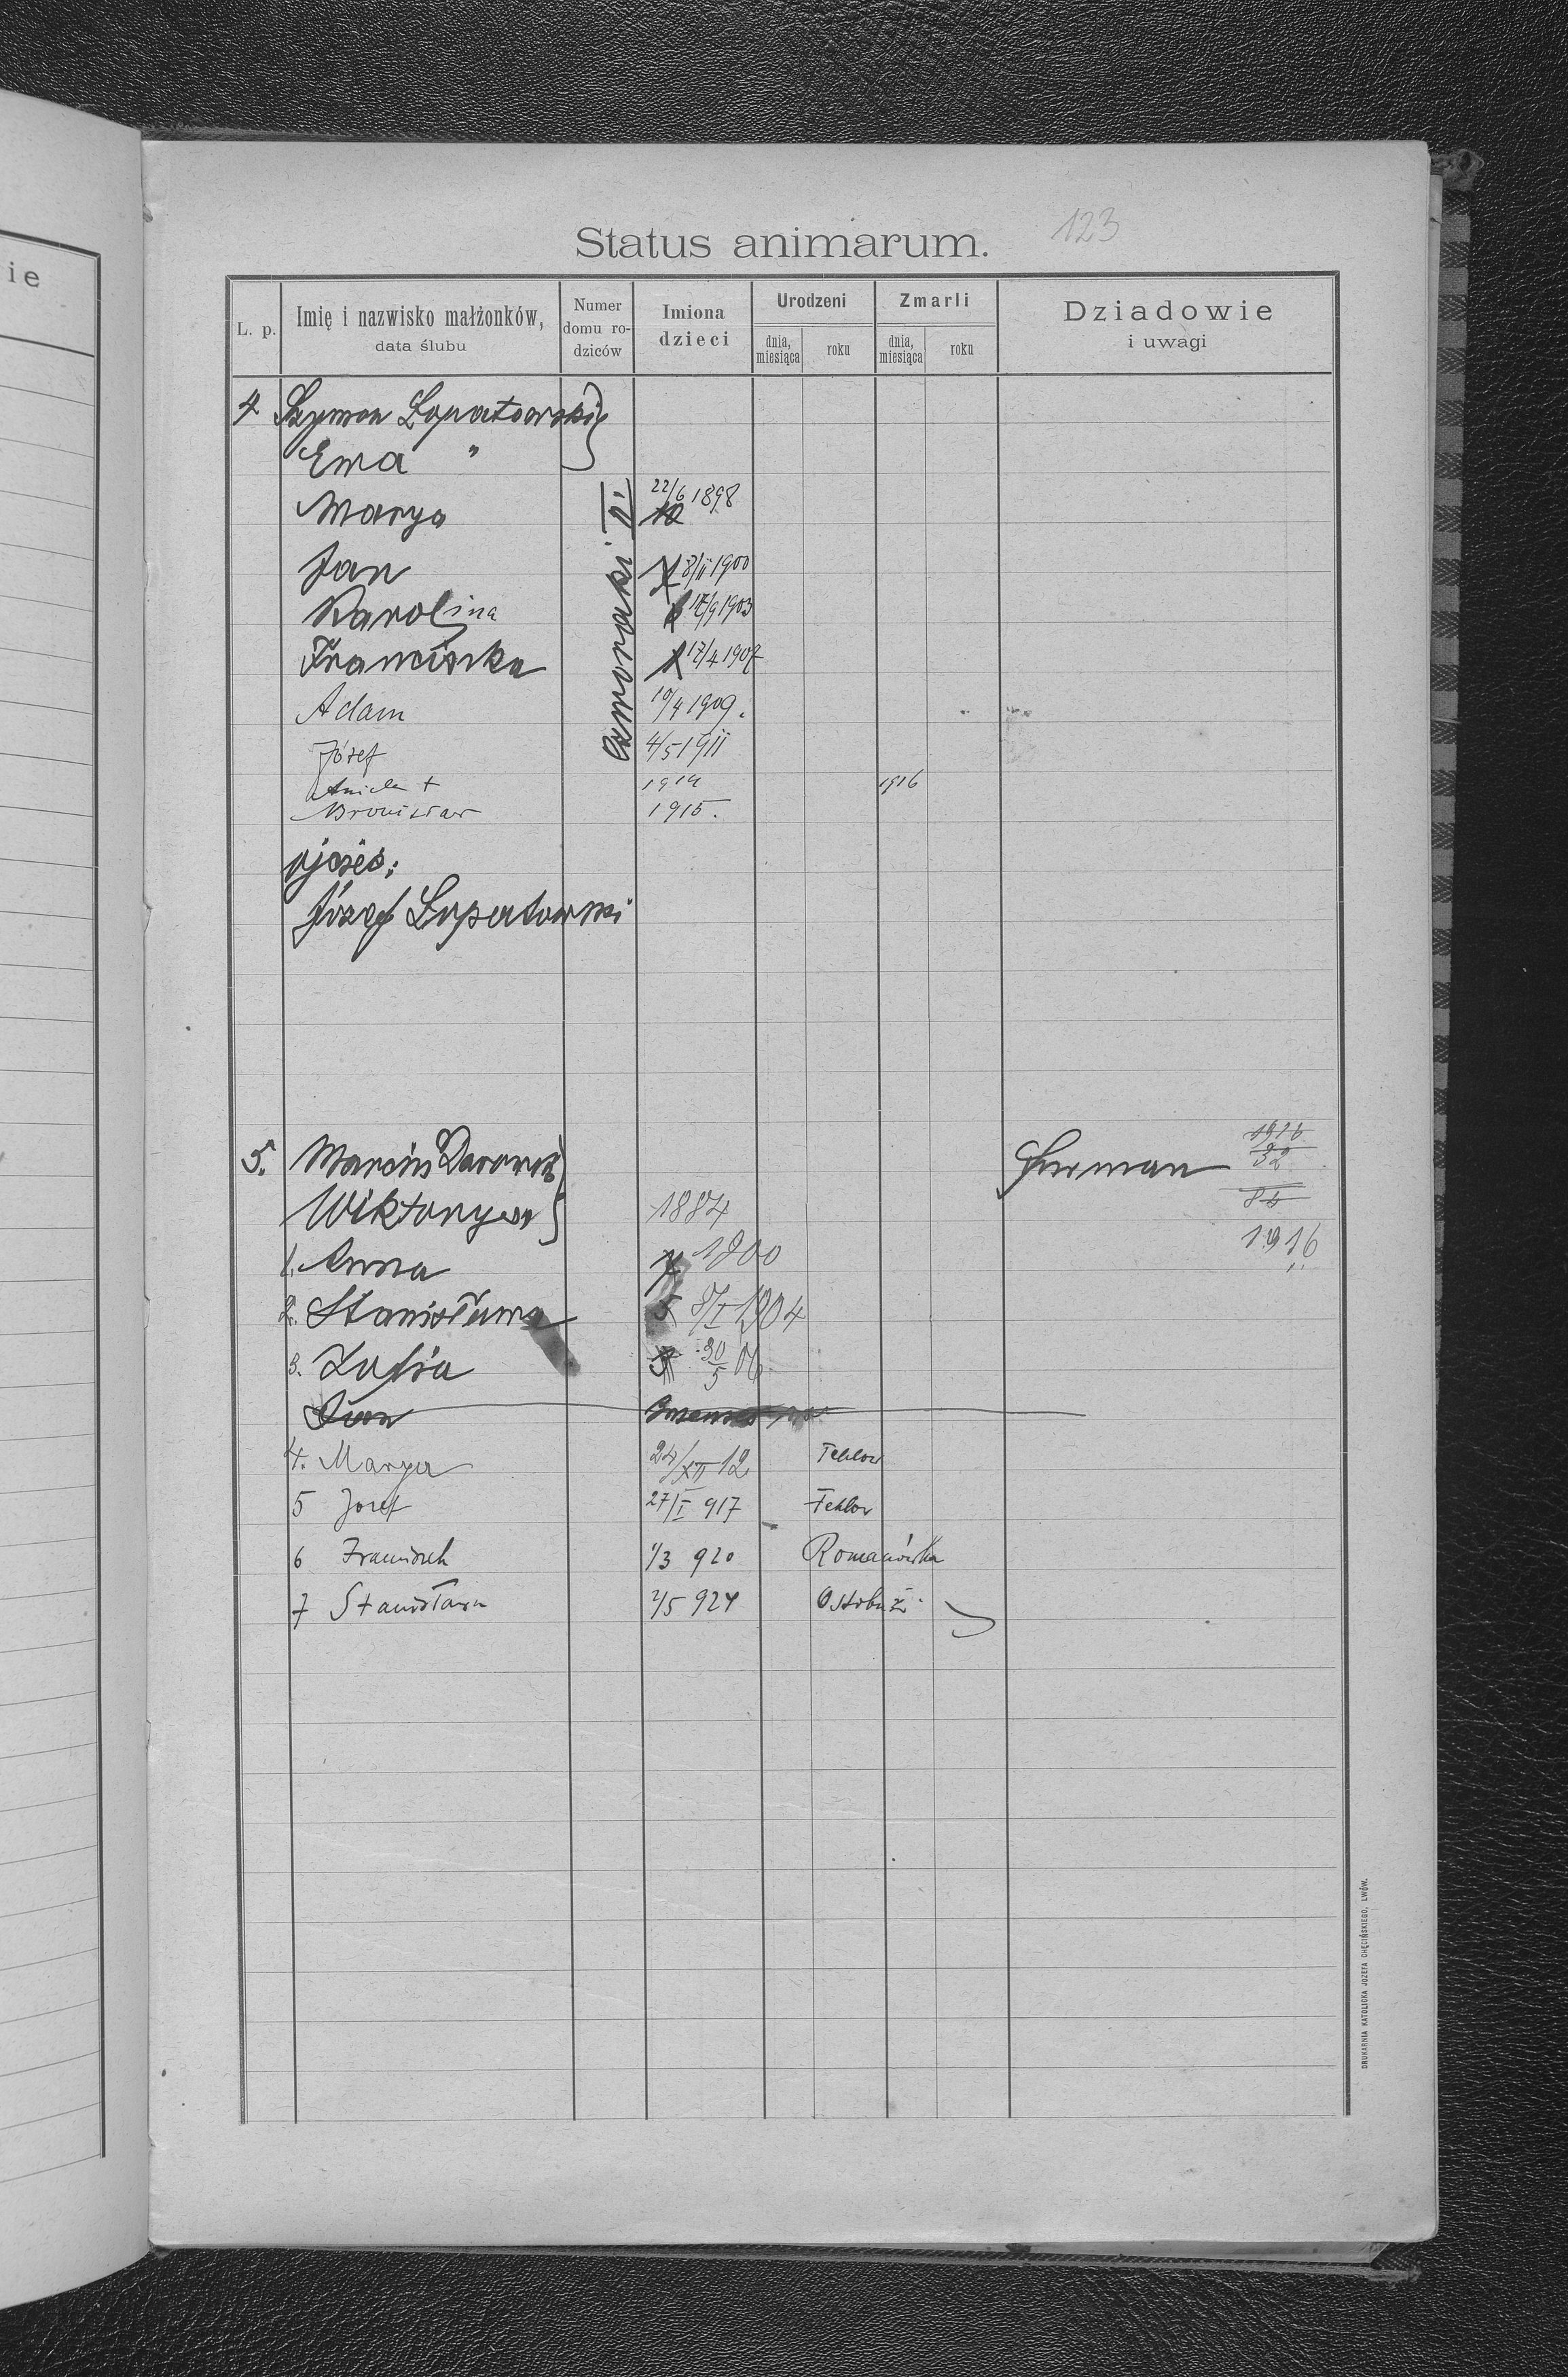 ie
123
Status animarum.
L. p.
Imię i nazwisko małżonków,
data ślubu
Numer
domu ro-
dziców
Imiona
dzieci
Urodzeni
dnia,
miesiąca
roku
Zmarli
dnia,
miesiąca
roku
Dziadowie
i uwagi
4 Szymon Łopatowski
Ewa "
Czworaki II.
Marya 22/6 1898
Jan 8/II 1900
Karolina 17/9 1903
Franciszka 17/4 1907
Adam 10/4 1909.
Józef 4/5 1911
Aniela + 1914 1916
Bronisław 1915.
ojciec:
Józef Łopatowski
5. Marcin Furman 1916
32
Wiktorya 1884 84
1916
1. Anna 1900
2. Stanisława 8/I 1904
3. Zofia 30/5 06
4. Marya 24/XII 12 Tehlow
5 Josef 27/I 917 Tehlow
6 Franciszek 1/3 920 Romanówka
7 Stanisława 2/5 924 Ostobuż
DRUKARNIA KATOLICKA JOZEFA CHĘCIŃSKIEGO, LWÓW.